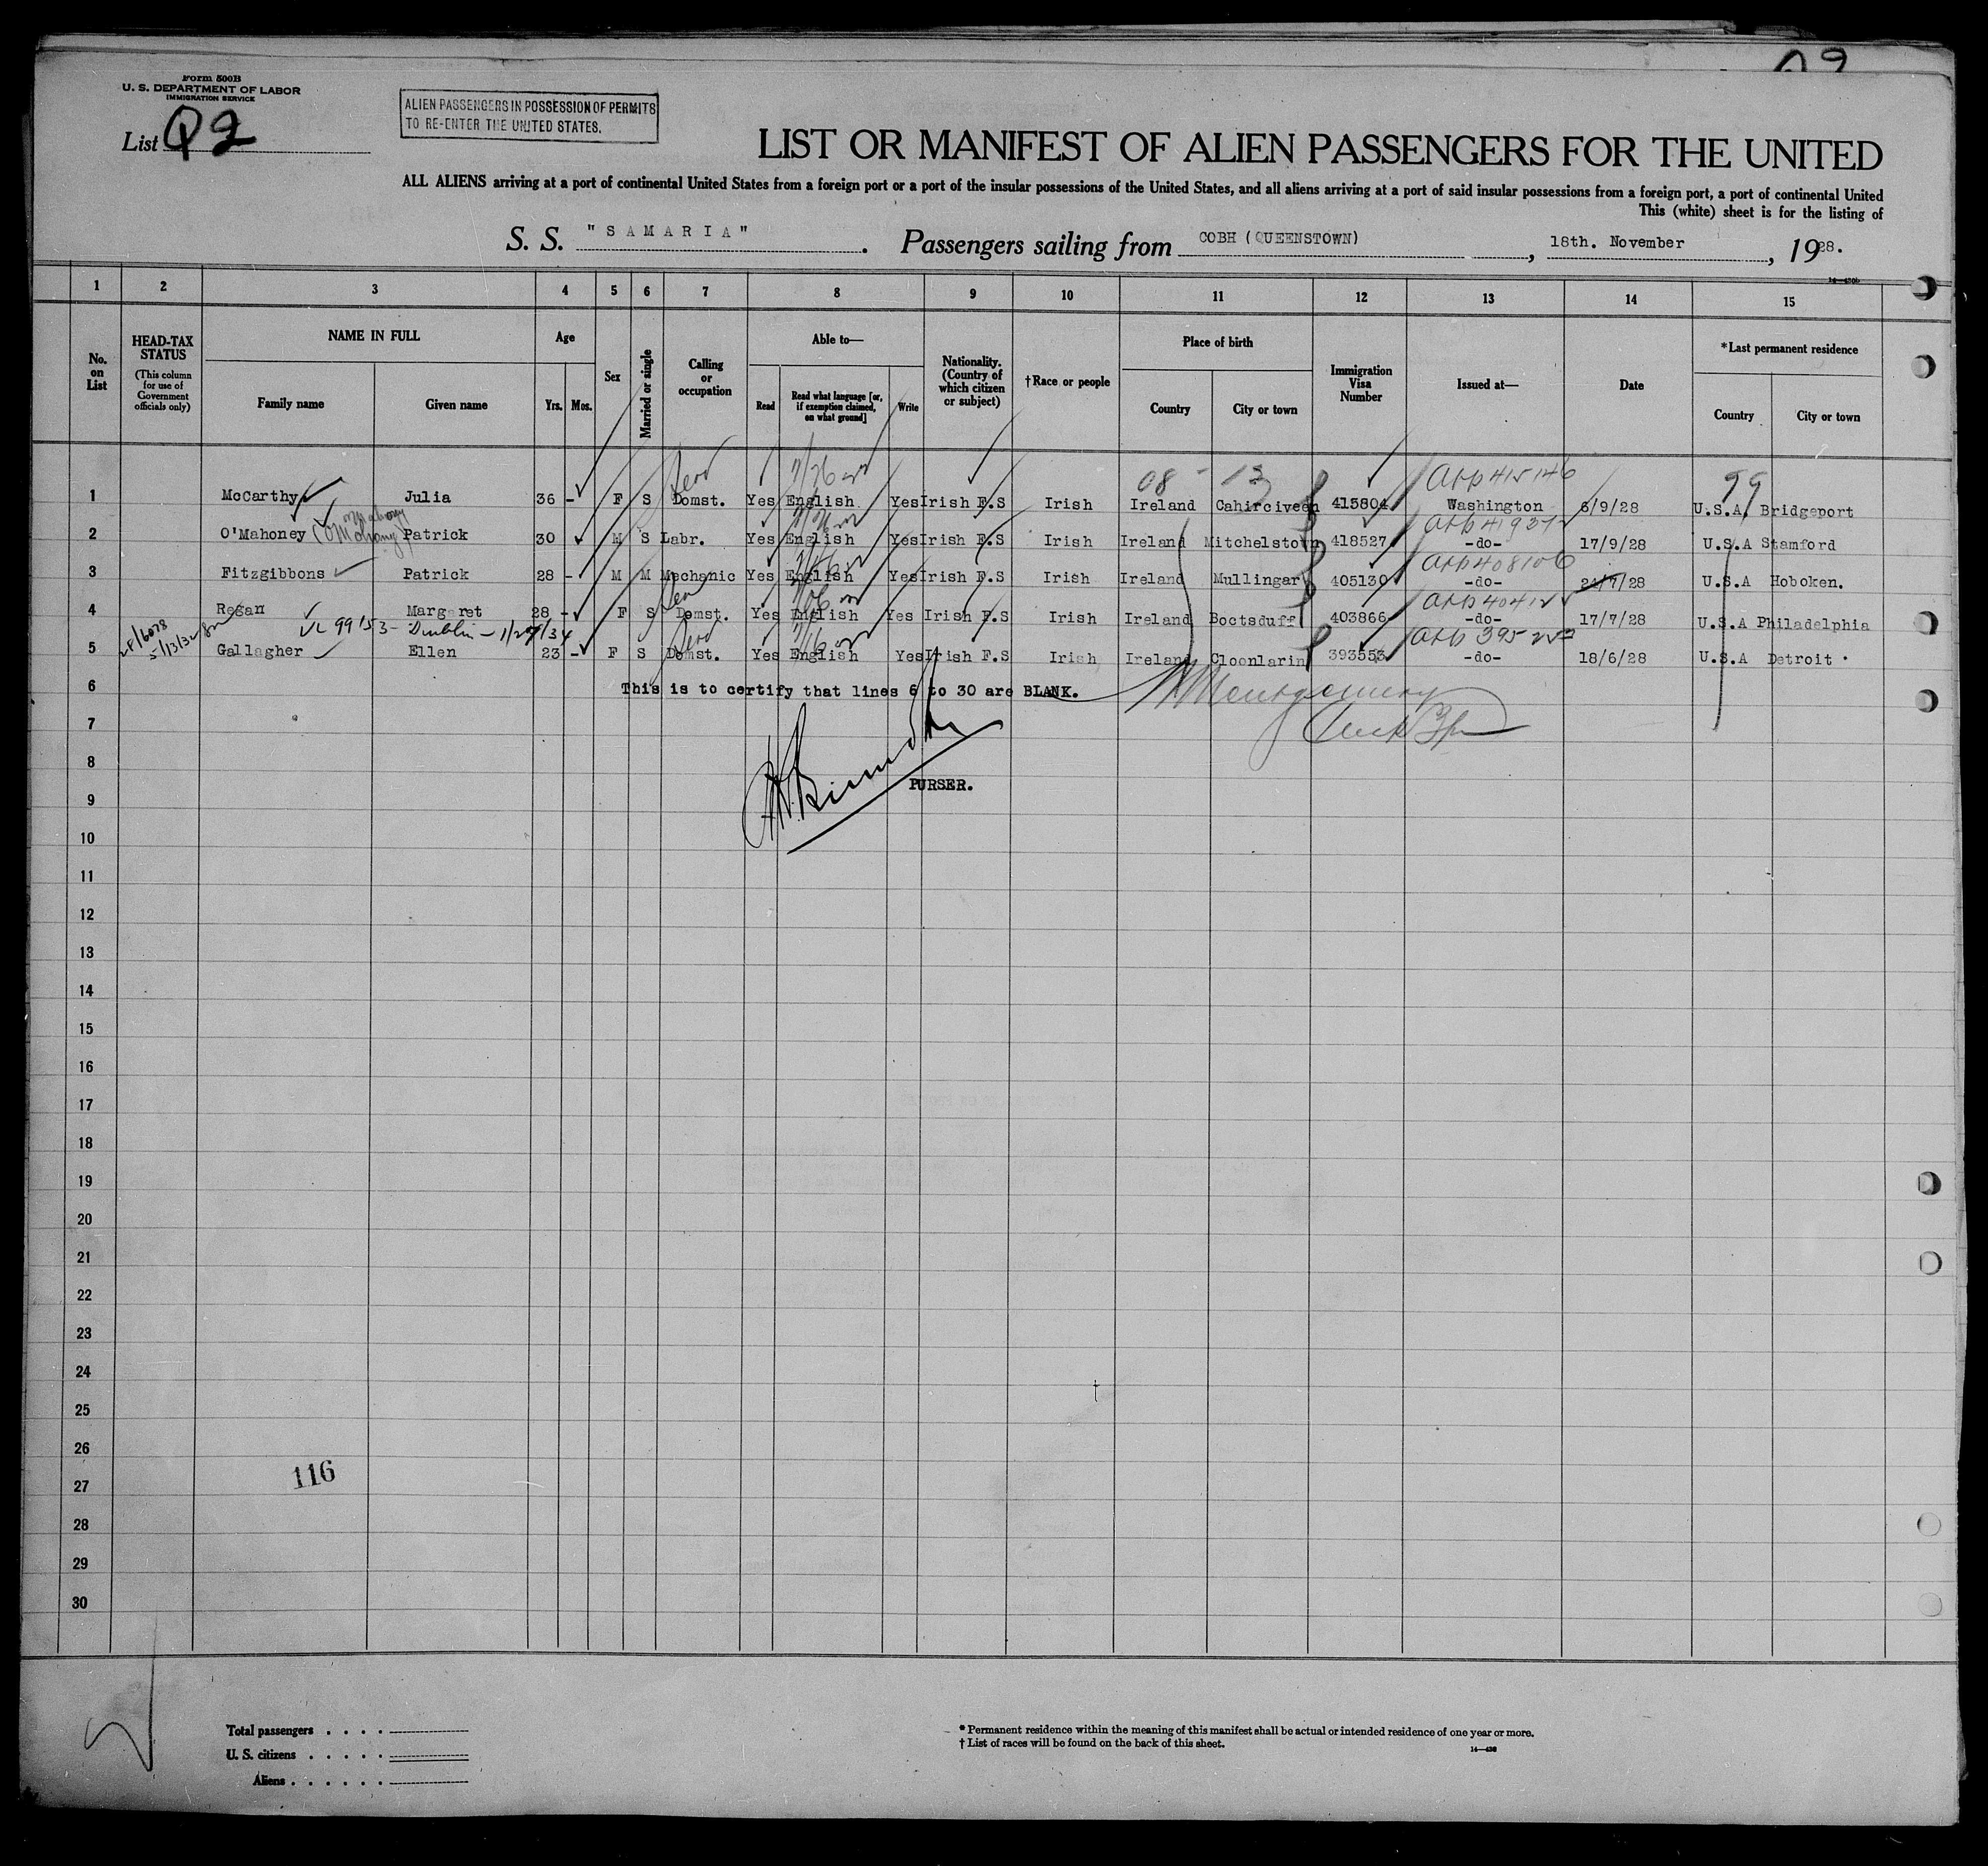 Q2
Form 500B
U. S. DEPARTMENT OF LABOR
IMMIGRATION SERVICE
List Q2
ALIEN PASSENGERS IN POSSESSION OF PERMITS
TO RE-ENTER THE UNITED STATES.
LIST OR MANIFEST OF ALIEN PASSENGERS FOR THE UNITED
ALL ALIENS arriving at a port of continental United States from a foreign port or a port of the insular possessions of the United States, and all aliens arriving at a port of said insular possessions from a foreign port, a port of continental United
This (white) sheet is for the listing of
S. S. "SAMARIA". Passengers sailing from COBH (QUEENSTOWN), 18th. November, 1928.
1 2 3 4 5 6 7 8 9 10 11 12 13 14 15
No. on List
HEAD-TAX STATUS
(This column for use of Government officials only)
NAME IN FULL
Family name Given name
Age
Yrs. Mos.
Sex
Married or single
Calling or occupation
Able to—
Read Read what language [or, if exemption claimed, on what ground] Write
Nationality. (Country of which citizen or subject)
†Race or people
Place of birth
Country City or town
Immigration Visa Number
Issued at—
Date
*Last permanent residence
Country City or town
08 - 13 99
1 McCarthy Julia 36 - F S Domst. Yes English Yes Irish F.S Irish Ireland Cahirciveen 415804 Washington 6/9/28 U.S.A. Bridgeport
2 O'Mahoney Patrick 30 M S Labr. Yes English Yes Irish F.S Irish Ireland Mitchelstown 418527 -do- 17/9/28 U.S.A Stamford
3 Fitzgibbons Patrick 28 - M M Mechanic Yes English Yes Irish F.S Irish Ireland Mullingar 405130 -do- 24/7/28 U.S.A Hoboken.
4 Regan Margaret 28 - F S Domst. Yes English Yes Irish F.S Irish Ireland Bootsduff 403866 -do- 17/7/28 U.S.A Philadelphia
99153 - Dublin - 1/27/34
5 Gallagher Ellen 23 - F S Domst. Yes English Yes Irish F.S Irish Ireland Cloonlarin 393553 -do- 18/6/28 U.S.A Detroit.
6 This is to certify that lines 6 to 30 are BLANK. Montgomery
7
8
PURSER.
9
10
11
12
13
14
15
16
17
18
19
20
21
22
23
24
25
26
116
27
28
29
30
Total passengers . . . .
U. S. citizens . . . . .
Aliens . . . . . .
* Permanent residence within the meaning of this manifest shall be actual or intended residence of one year or more.
† List of races will be found on the back of this sheet.